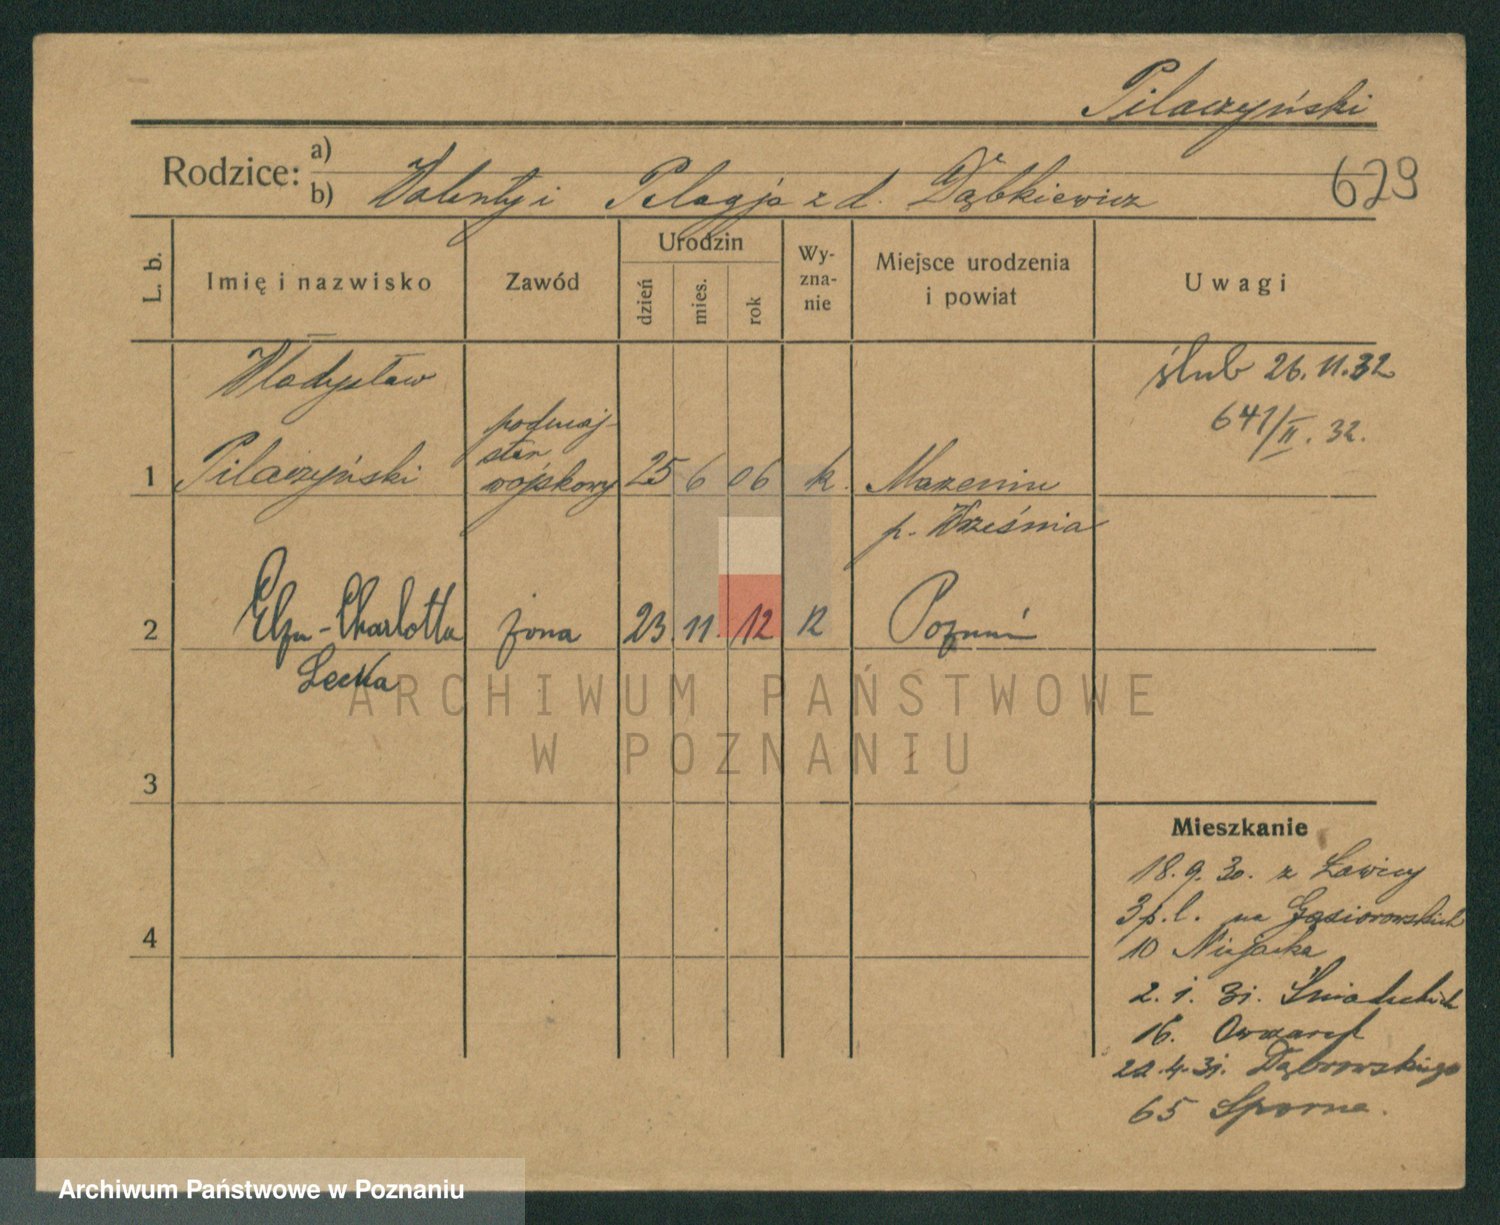 Pilaczyński
629
Rodzice: a)
b) Walenty i Pelagja z d. Dąbkiewicz
L. b.
Imię i nazwisko
Zawód
Urodzin
dzień
mies.
rok
Wy-
zna-
nie
Miejsce urodzenia
i powiat
Uwagi
Władysław
ślub 26.11.32
641/II. 32.
podmaj-
ster
1 Pilaczyński wojskowy 25 6 06 k. Marzenin
p. Września
2 Elza-Charlotta żona 23. 11. 12 k Poznań
Lecka
ARCHIWUM PAŃSTWOWE
W POZNANIU
3
Mieszkanie
18. 9. 30. z Ławicy
3 p. l. na Gąsiorowskich
4
10
2. 1. 31. Śniadeckich
16.
22. 4. 31. Dąbrowskiego
65 Sporna.
Archiwum Państwowe w Poznaniu